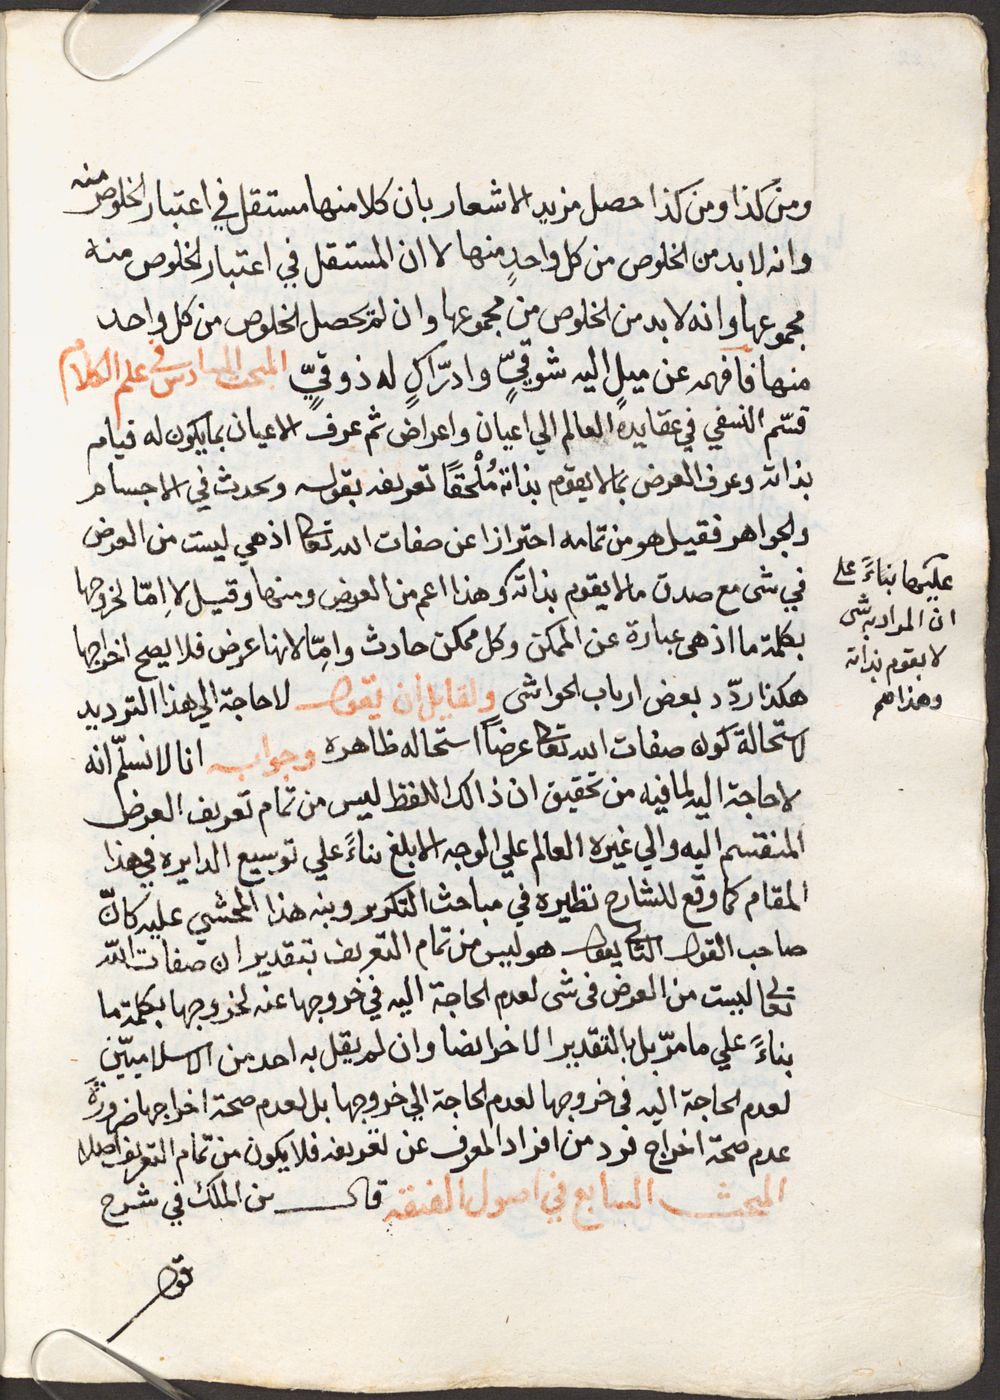 ومن كذا ومن كذا حصل مزيد الاشعار بان كلا منها مستقل في اعتبار الخلوص منه
وانه لا بد من الخلوص من كل واحدٍ منها لا ان المستقل في اعتبار الخلوص منه
مجموعها وانه لا بد من الخلوص من مجموعها وان لم يحصل الخلوص من كل واحد
منها فافهمه عن ميلٍ اليه شوقيٍّ وادرّاكٍ له ذوقيٍّ المبحث السادس في علم الكلام
قسّم النسفي في عقايده العالم الي اعيان واعراض ثم عرف الاعيان بما يكون له قيام
بذاته وعرف العرض بما لا يقوم بذاته مُلْحقًا تعريفه بقوله ويحدث في الاجسام
والجواهر فقيل هو من تمامه احترازا عن صفات الله تعالى اذ هي ليست من العرض
في شى مع صدق ما لا يقوم بذاته وهذا اعم من العرض ومنها وقيل لا اِمّا لخروجها
بكلمة ما اذ هي عبارة عن الممكن وكل ممكن حادث واِمّا لانها عرض فلا يصح اخراجها
هكذا ردّد بعض ارباب الحواشى ولقايل أن يقول لا حاجة الي هذا الترديد
لاستحالة كون صفات الله تعالى عرضاً استحاله ظاهرة وجوابه انا لا نسلّم انه
لا حاجة اليه لما فيه من تحقيق ان ذالك اللفظ ليس من تمام تعريف العرض
المنقسم اليه والي غيره العالم علي الوجه الابلغ بناءً علي توسيع الدايره في هذا
المقام كما وقع للشارح نظيره في مباحث التكرير ونبه هذا المحشي عليه كانّ
صاحب القول الثاني يقول هو ليس من تمام التعريف بتقدير ان صفات اللّه
تعالى ليست من العرض فى شى لعدم الحاجة اليه في خروجها عنه لخروجها بكلمة ما
بناءً علي ما مرّ بل بالتقدير الاخر ايضا وان لم يقل به احد من الاسلاميّين
لعدم الحاجة اليه فى خروجها لعدم الحاجة الي خروجها بل لعدم صحة اخراجها ضرورةً
عدم صحة اخراج فرد من افراد المعرف عن تعريفه فلا يكون من تمام التعريف اصلا
المبحث السابع في اصول الفقه قال بن الملك في شرح
قول
عليها بناءً على
ان المراد بشى
لا يقوم بذاته
وهذا هم